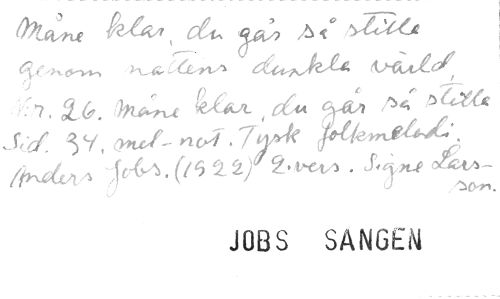 Måne klar, du går så stilla
genom nattens dunkla värld,
Nr. 26. Måne klar, du går så stilla
Sid. 34. mel-not. Tysk folkmelodi.
Anders Jobs. (1922) 2.vers. Signe Lars-
son.
JOBS SANGEN